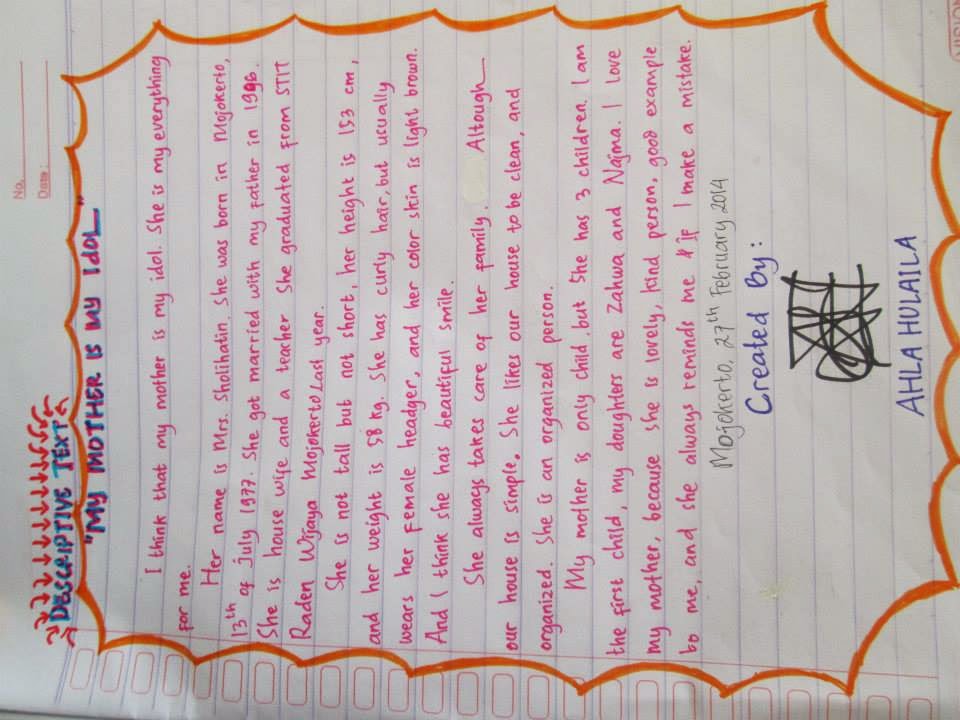 No.
Date:
DESCRIPTIVE TEXT
"MY MOTHER IS MY IDOL"
I think that my mother is my idol. She is my everything
for me.
Her name is Mrs. Sholihatin. She was born in Mojokerto,
13th of july 1977. She got married with my father in 1996.
She is house wife and a teacher She graduated from STIT
Raden Wijaya Mojokerto Last year.
She is not tall but not short, her height is 153 cm,
and her weight is 58 kg. She has curly hair, but usually
wears her female headger, and her color skin is light brown.
And I think she has beautiful smile.
She always takes care of her family Altough
our house is simple. She likes our house to be clean, and
organized. She is an organized person.
My mother is only child but She has 3 children. I am
the first child, my doughters are Zahwa and Najma. I love
my mother, because she is lovely, kind person, good example
to me, and she always reminds me if I make a mistake.
Mojokerto, 27th February 2014
Created By:
AHLA HULAILA